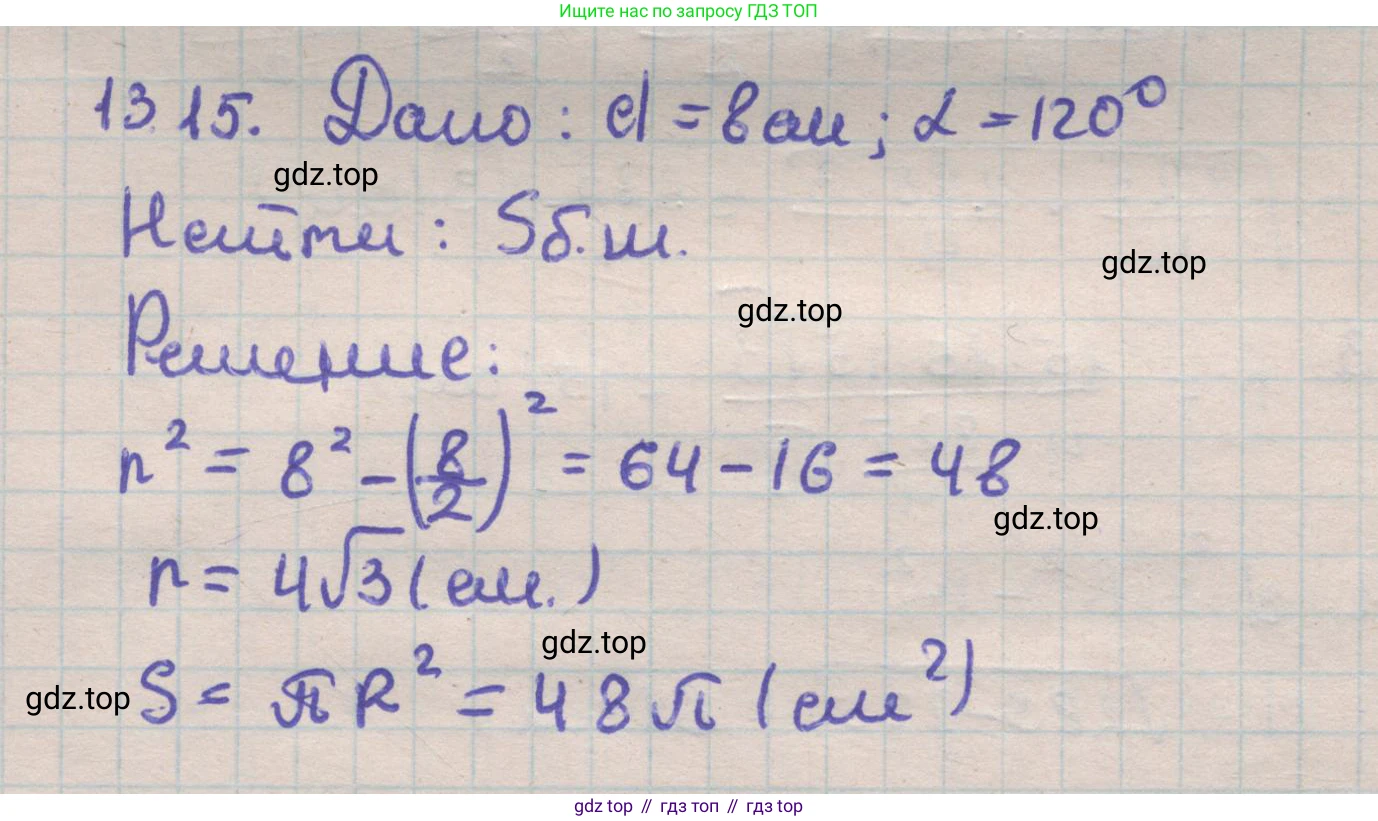 Ищите нас по запросу ГДЗ ТОП
13.15. Дано: d = 8 см; α = 120°
gdz.top
Найти: Sб.ш.
gdz.top
gdz.top
Решение:
r² = 8² - (8/2)² = 64 - 16 = 48
gdz.top
r = 4√3 (см.)
gdz.top
gdz.top
S = πR² = 48π (см²)
gdz top // гдз топ // gdz top